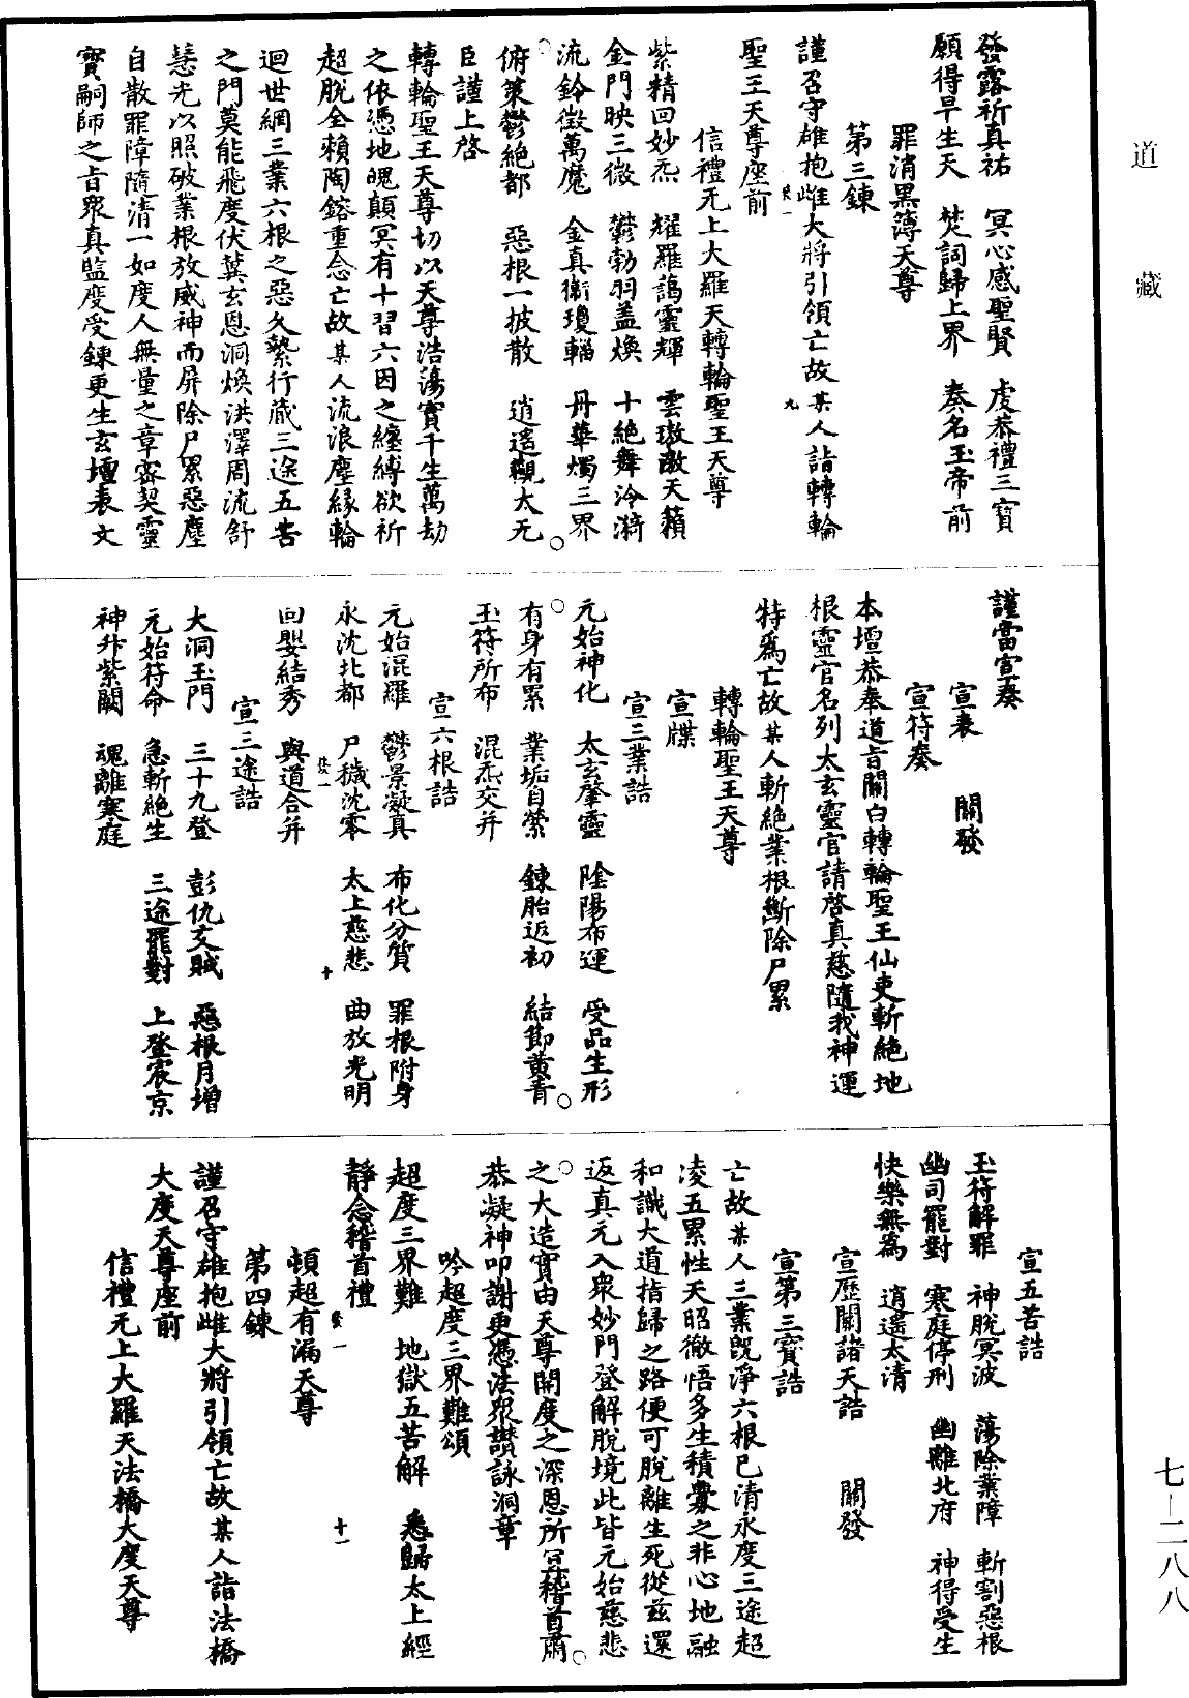 道藏
發露祈真祐　冥心感聖賢　虔恭禮三寶
願得早生天　焚詞歸上界　奏名玉帝前
罪消黑簿天尊
第三鍊
謹召守雄抱雌大將引領亡故某人詣轉輪
聖王天尊座前
信禮无上大羅天轉輪聖王天尊
紫精回妙炁　耀羅藹靈輝　雲璈激天籟
金門映三微　鬱勃羽蓋煥　十絕舞泠漪
流鈴徵萬魔　金真衞瓊輜　丹華燭三界
俯策鬱絕都　惡根一披散　逍遙觀太无
臣謹上啓
轉輪聖王天尊切以天尊浩蕩實千生萬劫
之依憑地魄顛冥有十習六因之纏縛欲祈
超脫全賴陶鎔重念亡故某人流浪塵緣輪
迴世網三業六根之惡久縶行藏三途五苦
之門莫能飛度伏冀玄恩洞煥洪澤周流舒
慧光以照破業根放威神而屏除尸累惡塵
自散罪障隨清一如度人無量之章密契靈
寶嗣師之旨眾真監度受鍊更生玄壇表文
謹當宣奏
宣表　關發
宣符奏
本壇恭奉道旨關白轉輪聖王仙吏斬絕地
根靈官名列太玄靈官請啓真慈隨我神運
特爲亡故某人斬絕業根斷除尸累
轉輪聖王天尊
宣牒
宣三業誥
元始神化　太玄肇靈　陰陽布運　受品生形
有身有累　業垢自縈　鍊胎返初　結節黃青
玉符所布　混炁交并
宣六根誥
元始混羅　鬱景凝真　布化分質　罪根附身
永沈北都　尸穢沈零　太上慈悲　曲放光明
回嬰結秀　與道合并
宣三途誥
大洞玉門　三十九登　彭仇交賊　惡根月增
元始符命　急斬絕生　三途罷對　上登宸京
神升紫闕　魂離寒庭
宣五苦誥
玉符解罪　神脫冥波　蕩除業障　斬割惡根
幽司罷對　寒庭停刑　幽離北府　神得受生
快樂無爲　逍遙太清
宣歷關諸天誥　關發
宣第三寶誥
亡故某人三業既淨六根已清永度三途超
凌五累性天昭徹悟多生積釁之非心地融
和識大道指歸之路便可脫離生死從茲還
返真元入眾妙門登解脫境此皆元始慈悲
之大造實由天尊開度之深恩所宜稽首肅
恭凝神叩謝更憑法眾讚詠洞章
吟超度三界難頌
超度三界難　地獄五苦解　悉歸太上經
靜念稽首禮
頓超有漏天尊
第四鍊
謹召守雄抱雌大將引領亡故某人詣法橋
大度天尊座前
信禮无上大羅天法橋大度天尊
七—二八八